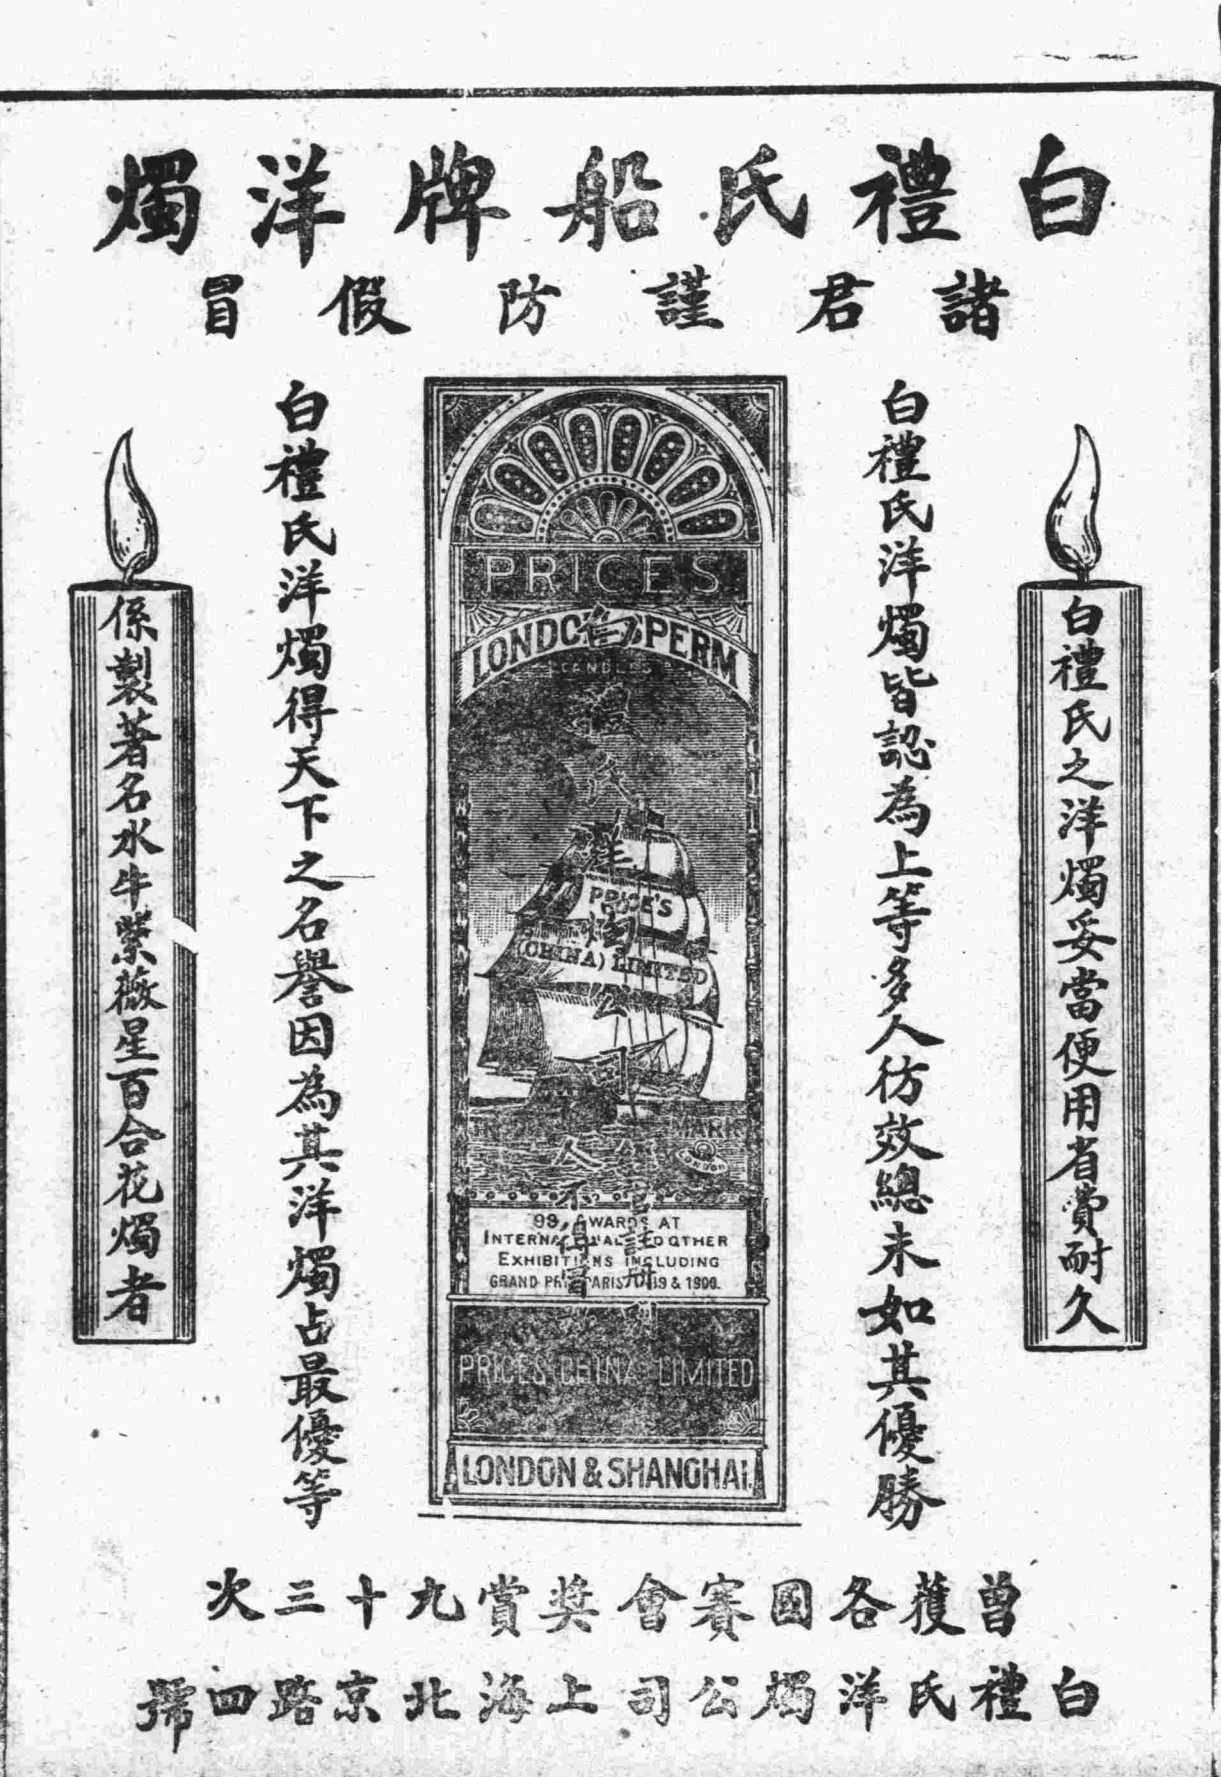 白禮氏船牌洋燭
諸君謹防假冒
白禮氏之洋燭妥當便用省費耐久
白禮氏洋燭皆認為上等多人彷效總未如其優勝
PRICES
LONDON SPERM
CANDLES
白禮氏洋燭公司
PRICE'S
(CHINA) LIMITED
MARK
LONDON
人不得冒
註冊
93 AWARDS AT
INTERNATIONAL AND OTHER
EXHIBITIONS INCLUDING
GRAND PRIX PARIS & 1900.
PRICES (CHINA) LIMITED
LONDON & SHANGHAI.
白禮氏洋燭得天下之名譽因為其洋燭占最優等
係製著名水牛紫薇星百合花燭者
曾獲各國賽會獎賞九十三次
白禮氏洋燭公司上海北京路四號